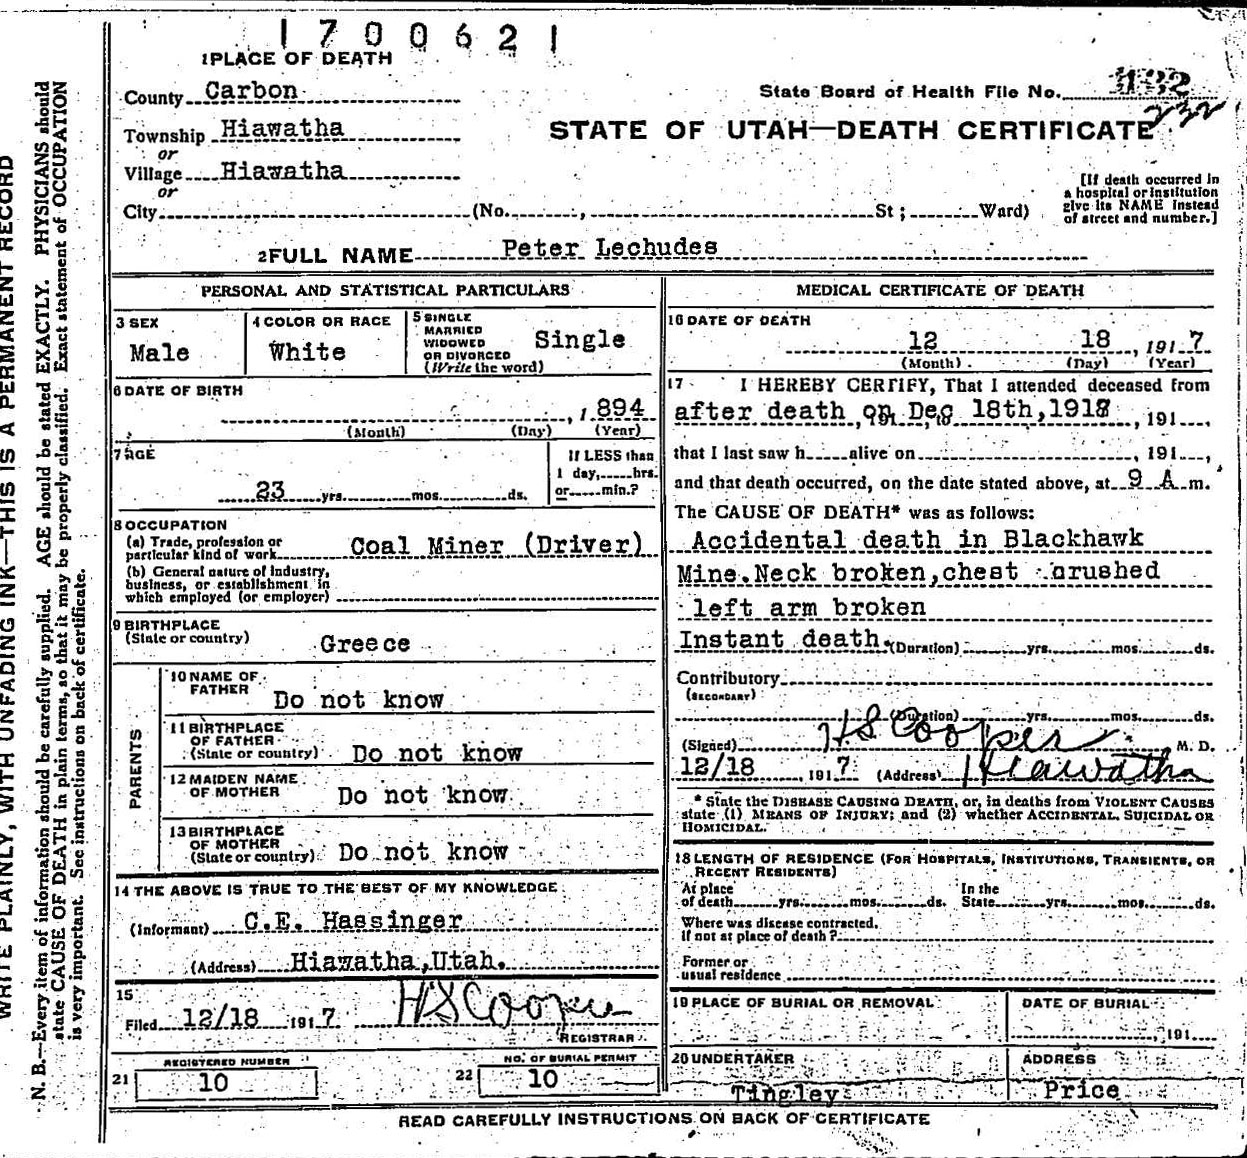 1700621
1 PLACE OF DEATH
County Carbon
State Board of Health File No. 132
232
Township Hiawatha
STATE OF UTAH—DEATH CERTIFICATE
or
Village Hiawatha
or
City (No. , St ; Ward)
[If death occurred in
a hospital or institution
give its NAME instead
of street and number.]
2 FULL NAME Peter Lechudes
PERSONAL AND STATISTICAL PARTICULARS
3 SEX
Male
4 COLOR OR RACE
White
5 SINGLE
MARRIED
WIDOWED
OR DIVORCED
(Write the word)
Single
6 DATE OF BIRTH
, 1 894
(Month) (Day) (Year)
7 AGE
23 yrs. mos. ds.
If LESS than
1 day, hrs.
or min.?
8 OCCUPATION
(a) Trade, profession or
particular kind of work Coal Miner (Driver)
(b) General nature of industry,
business, or establishment in
which employed (or employer)
9 BIRTHPLACE
(State or country) Greece
PARENTS
10 NAME OF
FATHER Do not know
11 BIRTHPLACE
OF FATHER
(State or country) Do not know
12 MAIDEN NAME
OF MOTHER Do not know
13 BIRTHPLACE
OF MOTHER
(State or country) Do not know
14 THE ABOVE IS TRUE TO THE BEST OF MY KNOWLEDGE
(Informant) C.E. Hassinger
(Address) Hiawatha,Utah.
15
Filed 12/18 191 7 HS Cooper
REGISTRAR
REGISTERED NUMBER
21 10
NO. OF BURIAL PERMIT
22 10
MEDICAL CERTIFICATE OF DEATH
16 DATE OF DEATH
12 18 , 191 7
(Month) (Day) (Year)
17 I HEREBY CERTIFY, That I attended deceased from
after death on Dec 18th,1917 , 191 ,
that I last saw h alive on , 191 ,
and that death occurred, on the date stated above, at 9 A m.
The CAUSE OF DEATH* was as follows:
Accidental death in Blackhawk
Mine.Neck broken,chest crushed
left arm broken
Instant death. (Duration) yrs. mos. ds.
Contributory
(SECONDARY)
(Duration) yrs. mos. ds.
(Signed) HS Cooper M. D.
12/18 , 191 7. (Address) Hiawatha
* State the DISEASE CAUSING DEATH, or, in deaths from VIOLENT CAUSES
state (1) MEANS OF INJURY; and (2) whether ACCIDENTAL, SUICIDAL OR
HOMICIDAL.
18 LENGTH OF RESIDENCE (FOR HOSPITALS, INSTITUTIONS, TRANSIENTS, OR
RECENT RESIDENTS)
At place In the
of death yrs. mos. ds. State yrs. mos. ds.
Where was disease contracted,
If not at place of death?
Former or
usual residence
19 PLACE OF BURIAL OR REMOVAL
DATE OF BURIAL
, 191
20 UNDERTAKER
Tingley
ADDRESS
Price
READ CAREFULLY INSTRUCTIONS ON BACK OF CERTIFICATE
WRITE PLAINLY, WITH UNFADING INK—THIS IS A PERMANENT RECORD
N. B.—Every item of information should be carefully supplied. AGE should be stated EXACTLY. PHYSICIANS should
state CAUSE OF DEATH in plain terms, so that it may be properly classified. Exact statement of OCCUPATION
is very important. See instructions on back of certificate.